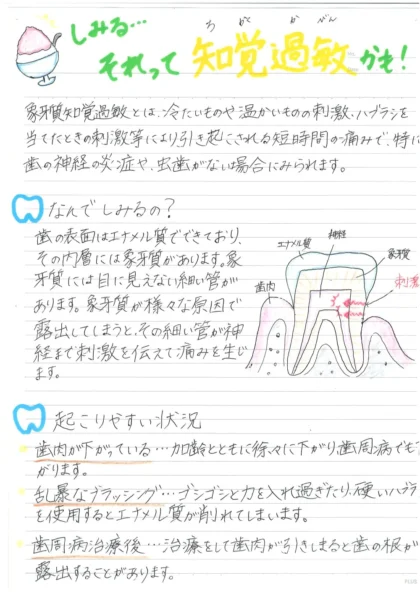 しみる…
それって知覚過敏かも!
ちかくかびん
象牙質知覚過敏とは、冷たいものや温かいものの刺激、ハブラシを
当てたときの刺激等により引き起こされる短時間の痛みで、特に
歯の神経の炎症や、虫歯がない場合にみられます。
なんでしみるの?
歯の表面はエナメル質でできており、
その内層には象牙質があります。象
牙質には目に見えない細い管が
あります。象牙質が様々な原因で
露出してしまうと、その細い管が神
経まで刺激を伝えて痛みを生じ
ます。
エナメル質
神経
象牙質
歯肉
刺激
起こりやすい状況
歯肉が下がっている…加齢とともに徐々に下がり、歯周病でも下
がります。
乱暴なブラッシング…ゴシゴシと力を入れ過ぎたり、硬いハブラ
を使用するとエナメル質が削れてしまいます。
歯周病治療後…治療をして歯肉が引きしまると歯の根が
露出することがあります。